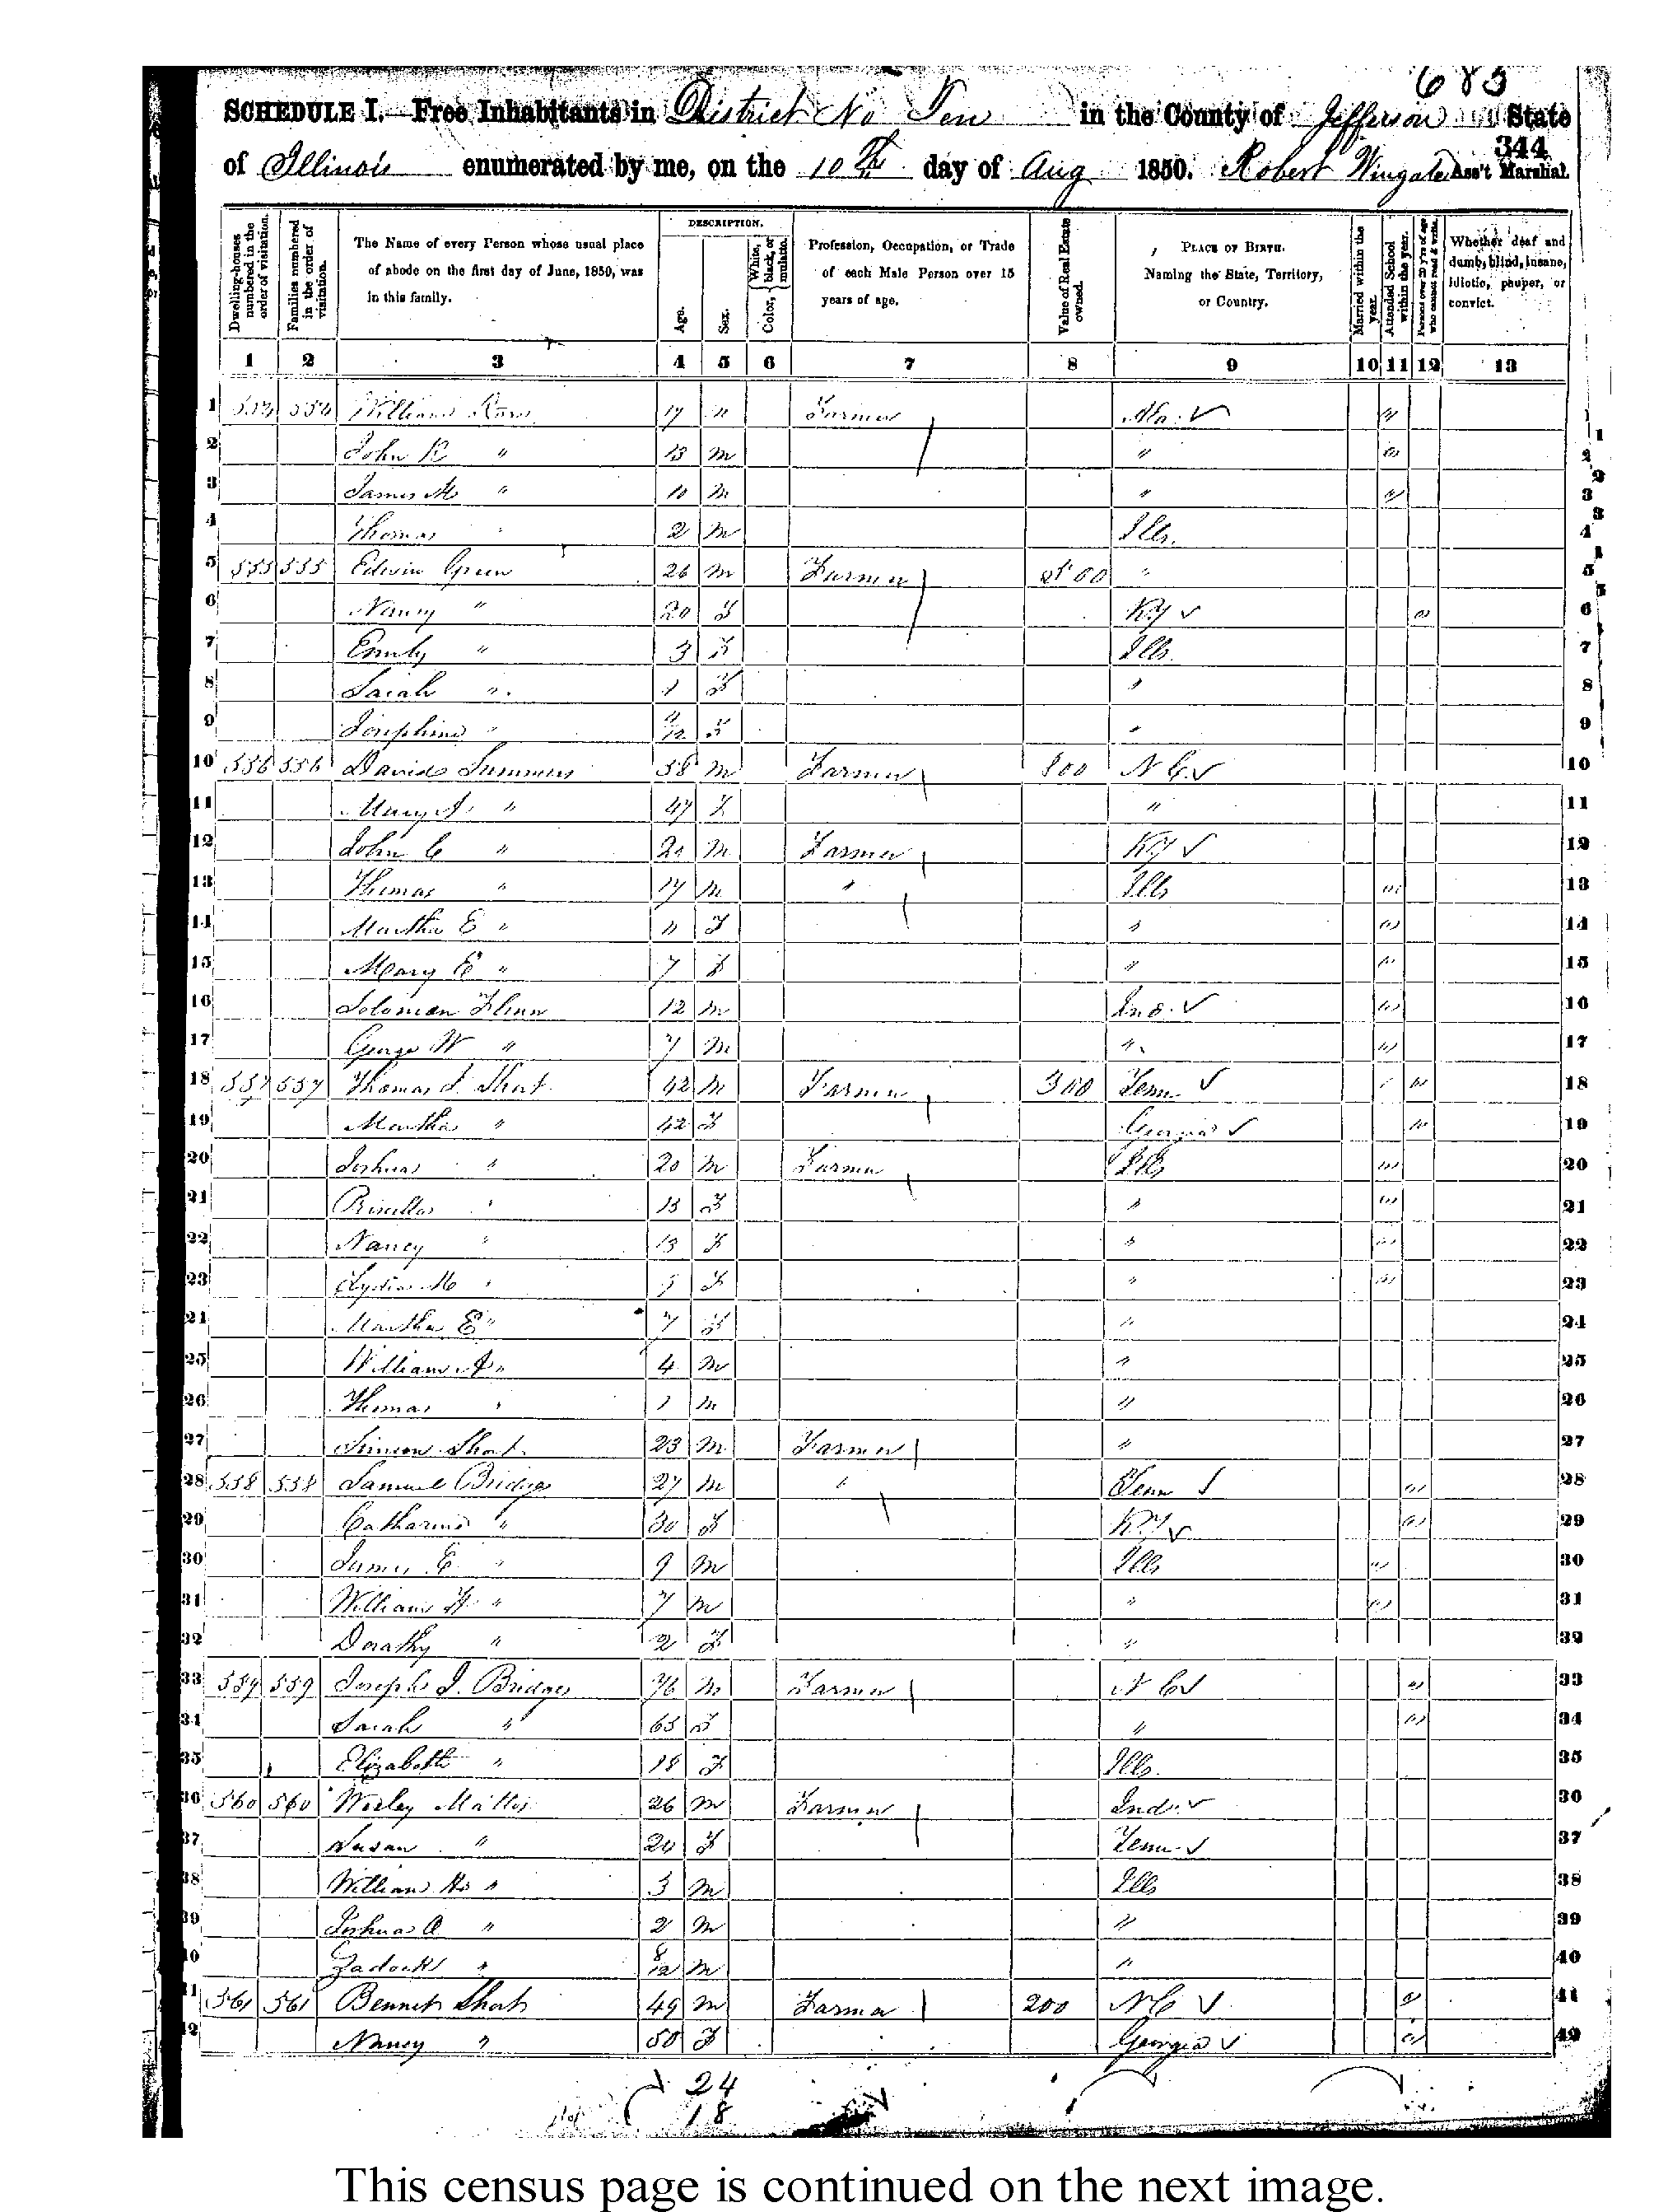 683
SCHEDULE I. Free Inhabitants in District No Ten in the County of Jefferson State
344
of Illinois enumerated by me, on the 10th day of Aug 1850. Robert Wingate Ass't Marshal.
Dwelling-houses numbered in the order of visitation.
Families numbered in the order of visitation.
The Name of every Person whose usual place of abode on the first day of June, 1850, was in this family.
DESCRIPTION.
Age.
Sex.
Color, White, black, or mulatto.
Profession, Occupation, or Trade of each Male Person over 15 years of age.
Value of Real Estate owned.
PLACE OF BIRTH.
Naming the State, Territory, or Country.
Married within the year.
Attended School within the year.
Persons over 20 y'rs of age who cannot read & write.
Whether deaf and dumb, blind, insane, idiotic, pauper, or convict.
1 2 3 4 5 6 7 8 9 10 11 12 13
1 554 554 William 17 m Farmer
2 John R " 13 m " 2
3 James M " 10 m " 3
4 Thomas " 2 m Ills. 4
5 555 555 Edwin Green 26 m Farmer " 5
6 Nancy " 20 F Ky 6
7 Emily " 3 F Ills. 7
8 Sarah " 1 F " 8
9 Josephine " F " 9
10 556 556 David Summers 58 m Farmer 800 N C 10
11 Mary " 47 F " 11
12 John C " 20 m Farmer Ky 12
13 Thomas " 17 m " Ills 13
14 Martha E " 11 F " 14
15 Mary E " 7 F " 15
16 Solomon Flinn 12 m Ind. 16
17 George W " 7 m " 17
18 557 557 Thomas Short 42 m Farmer 300 Tenn 18
19 Martha " 42 F Georgia 19
20 Joshua " 20 m Farmer Ills 20
21 Priscilla " 15 F " 21
22 Nancy " 13 F " 22
23 Lydia M " F " 23
24 Martha E " 7 F " 24
25 William A " 4 m " 25
26 Thomas " 1 m " 26
27 Simeon Short 23 m Farmer " 27
28 558 558 Samuel Bridges 27 m " Tenn 28
29 Catharine " 30 F Ky 29
30 James E " 9 m Ills 30
31 William " 7 m " 31
32 Dorathy " 2 F " 32
33 559 559 Joseph J. Bridges 76 m Farmer N C 33
34 Sarah " 65 F " 34
35 Elizabeth " 18 F Ills. 35
36 560 560 Wesley 26 m Farmer Ind. 36
37 Susan " 24 F Tenn 37
38 William H " 3 m Ills 38
39 Joshua A " 2 m " 39
40 Zadock " 8/12 m " 40
41 561 561 Bennet Short 49 m Farmer 200 N C 41
42 Nancy " 50 F Georgia 42
24
18
This census page is continued on the next image.